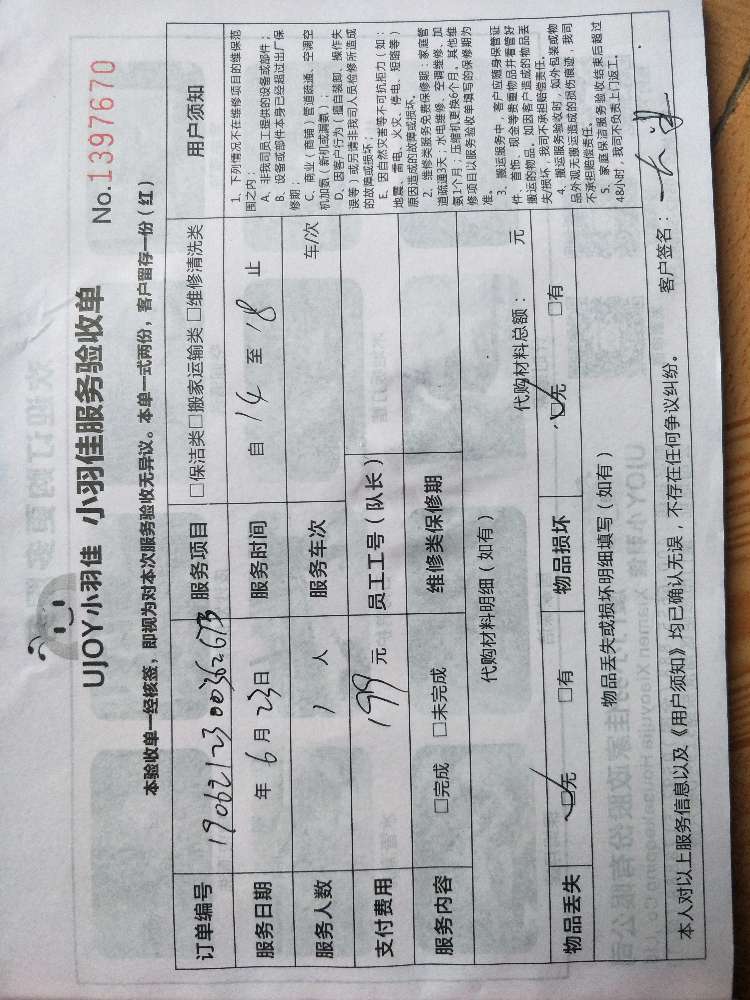 UJOY小羽佳 小羽佳服务验收单
No.1397670
本验收单一经核签，即视为对本次服务验收无异议。本单一式两份，客户留存一份（红）
订单编号 190621230036267B 服务项目 □保洁类□搬家运输类 □维修清洗类
服务日期 年 6月 23日 服务时间 自 14 至 18 止
服务人数 1 人 服务车次 车/次
支付费用 199 元 员工工号（队长）
服务内容 □完成 □未完成 维修类保修期
代购材料明细（如有） 代购材料总额： 元
物品丢失 □无 □有 物品损坏 □无 □有
物品丢失或损坏明细填写（如有）
用户须知
1、下列情况不在维修项目的维保范
围之内：
A、非我司员工提供的设备或部件；
B、设备或部件本身已经超过出厂保
修期；
C、商业（商铺）管道疏通、空调空
机加氨（新机或漏氨）；
D、因客户行为（擅自装卸、操作失
误等）或另请非我司人员检修所造成
的故障或损坏；
E、因自然灾害等不可抗拒力（如：
地震、雷电、火灾、停电、短路等）
原因造成的故障或损坏。
2、维修类服务免费保修期：家庭管
道疏通3天；水电维修、空调维修、加
氨1个月；压缩机更换6个月；其他维
修项目以服务验收单填写的保修期为
准。
3、搬运服务中，客户应随身保管证
件、首饰、现金等贵重物品并看管好
搬运的物品。如因客户造成的物品丢
失/损坏，我司不承担赔偿责任。
4、搬运服务验收时，如外包装或物
品外观无搬运造成的损伤痕迹，我司
不承担赔偿责任。
5、家庭保洁服务验收结束后超过
48小时，我司不负责上门返工。
本人对以上服务信息以及《用户须知》均已确认无误，不存在任何争议纠纷。 客户签名：